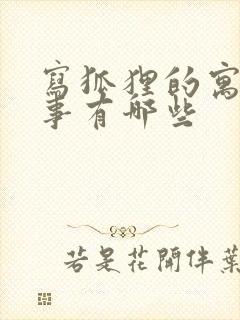 寫狐狸的寓
事有哪些
若是花開伴葉